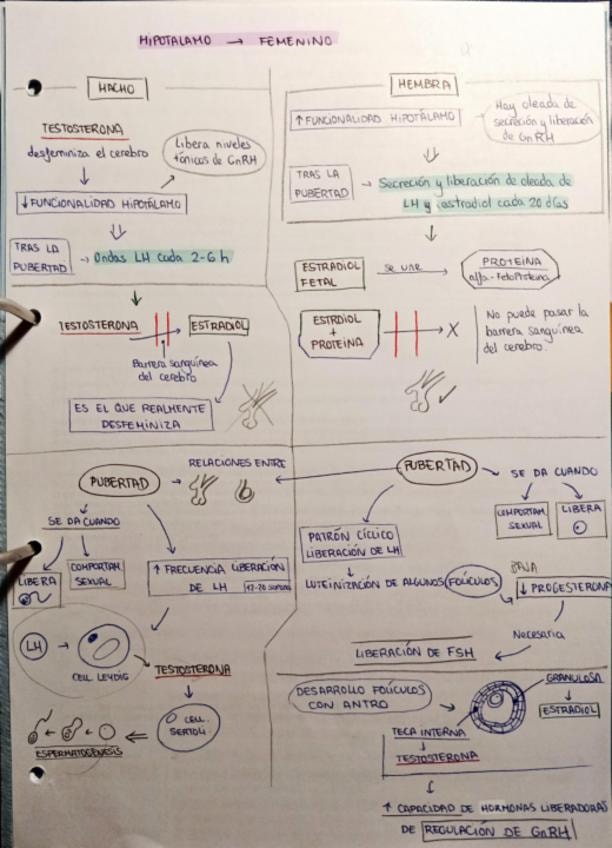 HIPOTÁLAMO → FEMENINO
MACHO
TESTOSTERONA
desfeminiza el cerebro
Libera niveles
tónicos de GnRH
↓ FUNCIONALIDAD HIPOTÁLAMO
TRAS LA
PUBERTAD
→ Ondas LH cada 2-6 h
TESTOSTERONA
ESTRADIOL
Barrera sanguínea
del cerebro
ES EL QUE REALMENTE
DESFEMINIZA
HEMBRA
↑ FUNCIONALIDAD HIPOTÁLAMO
Hay oleada de
secreción y liberación
de GnRH
TRAS LA
PUBERTAD
→ Secreción y liberación de oleada de
LH y estradiol cada 20 días
ESTRADIOL
FETAL
se une
PROTEINA
alfa-FetoProteina
ESTRDIOL
+
PROTEINA
X
No puede pasar la
barrera sanguínea
del cerebro.
PUBERTAD
RELACIONES ENTRE
SE DA CUANDO
LIBERA
COMPORTAM.
SEXUAL
↑ FRECUENCIA LIBERACIÓN
DE LH
LH
CELL LEYDIG
TESTOSTERONA
CELL.
SERTOLI
ESPERMATOGÉNESIS
PUBERTAD
SE DA CUANDO
COMPORTAM.
SEXUAL
LIBERA
PATRÓN CÍCLICO
LIBERACIÓN DE LH
LUTEINIZACIÓN DE ALGUNOS FOLÍCULOS
BAJA
↓ PROGESTERONA
Necesaria
LIBERACIÓN DE FSH
DESARROLLO FOLÍCULOS
CON ANTRO
GRANULOSA
ESTRADIOL
TECA INTERNA
TESTOSTERONA
↑ CAPACIDAD DE HORMONAS LIBERADORAS
DE REGULACIÓN DE GnRH